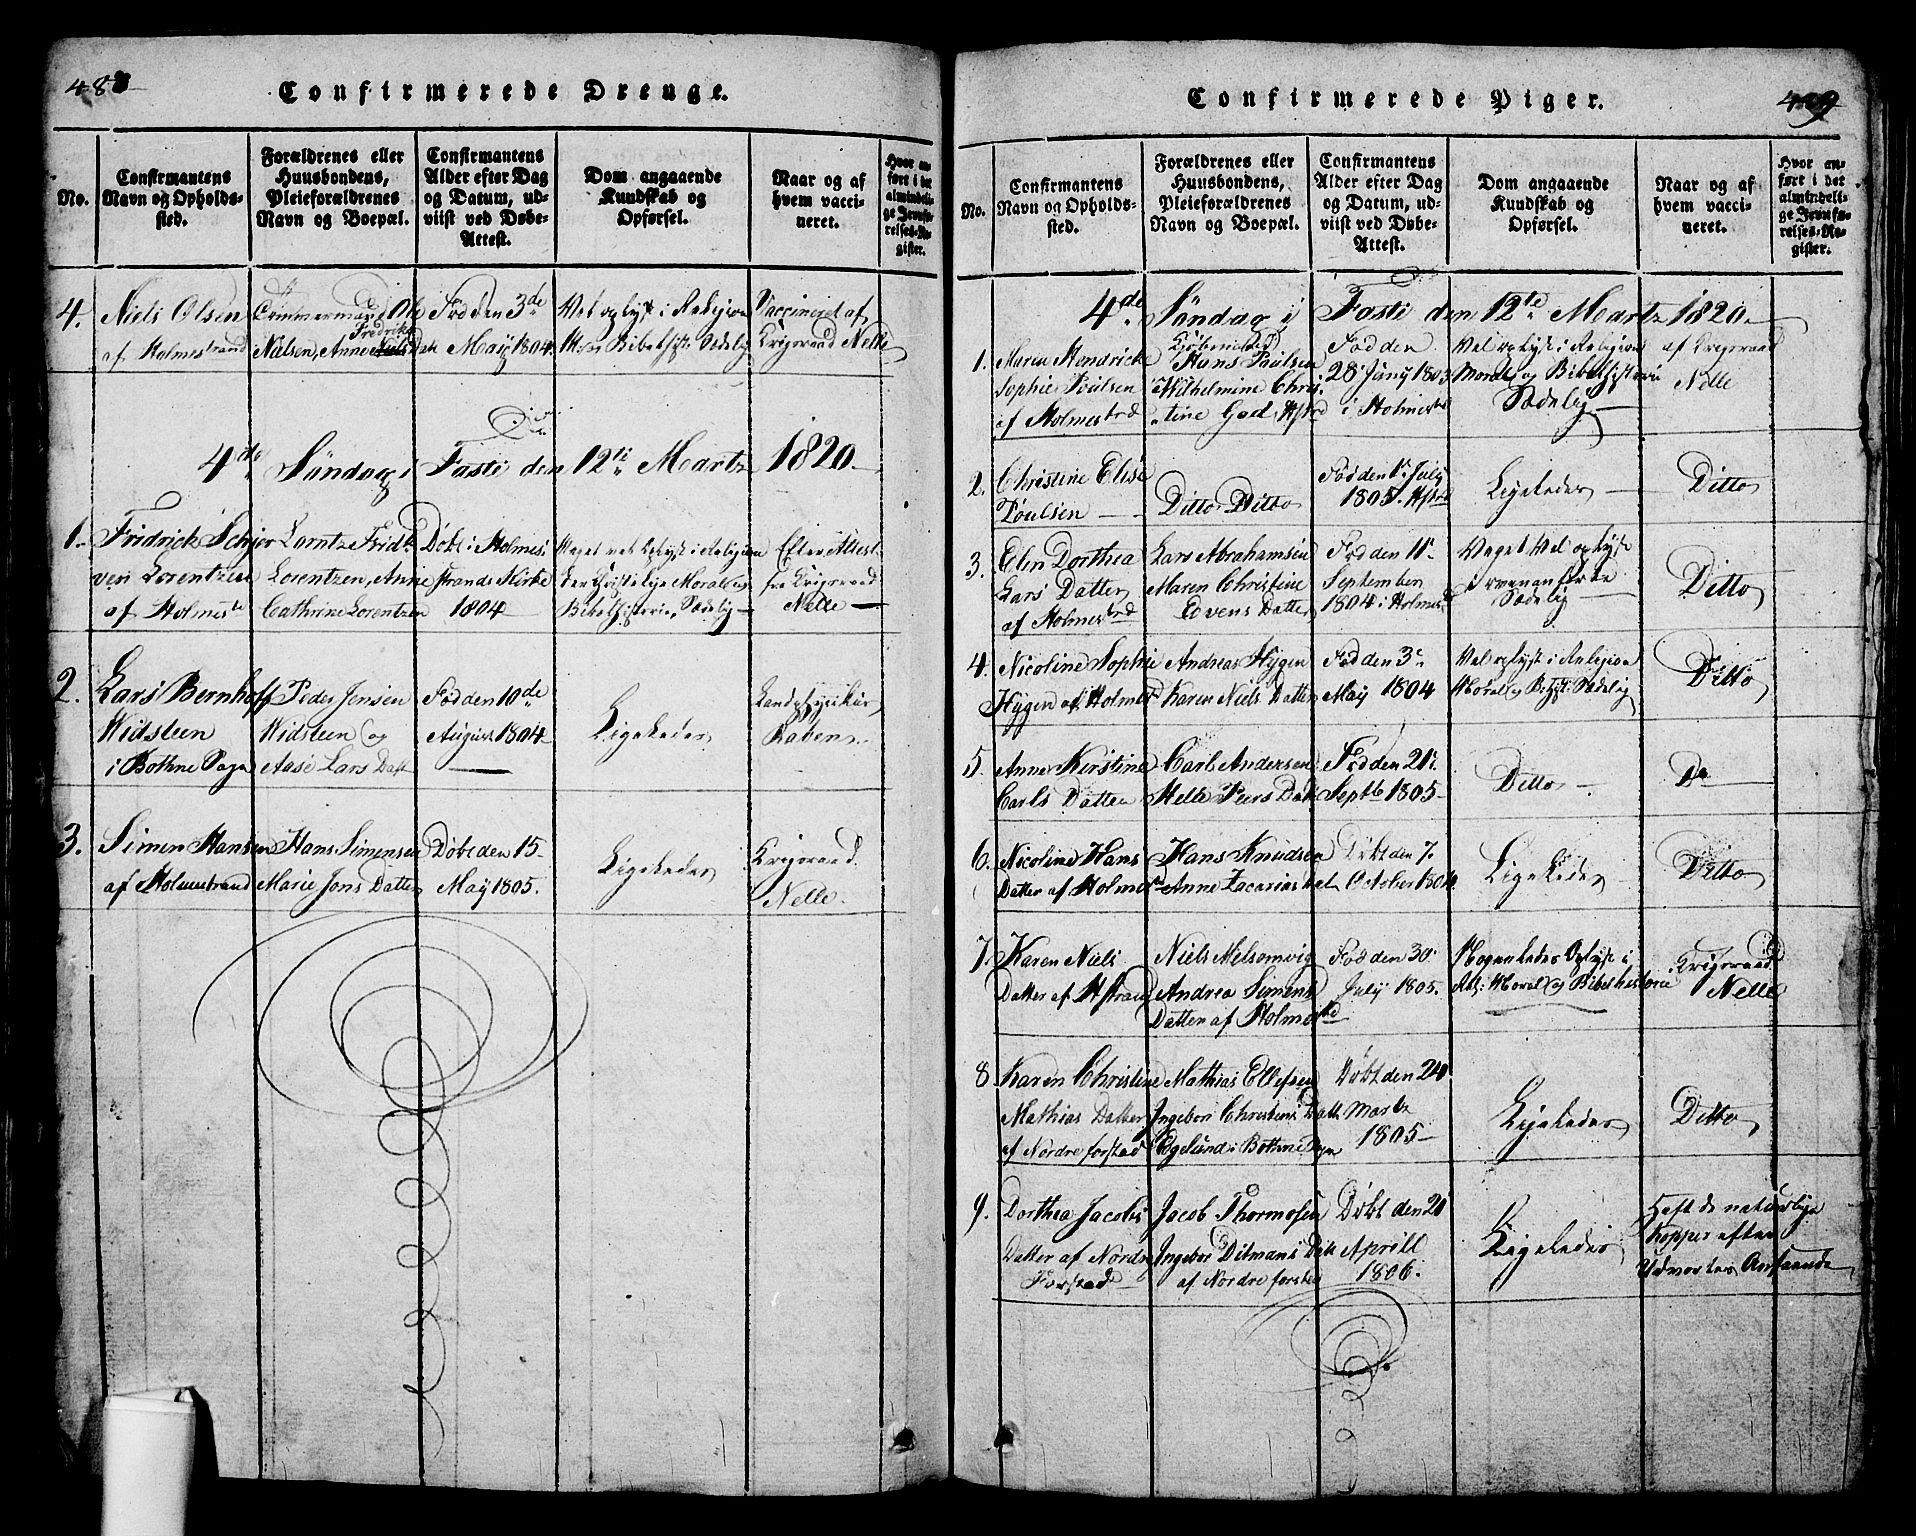 488
Confirmerede Drenge.
No.
Confirmantens
Navn og Opholds-
sted.
Forældrenes eller
Huusbondens,
Pleieforældrenes
Navn og Boepæl.
Confirmantens
Alder efter Dag
og Datum, ud-
viist ved Døbe-
Attest.
Dom angaaende
Kundskab og
Opførsel.
Naar og af
hvem vacci-
neret.
Hvor an-
ført i det
almindeli-
ge Jevnfø-
relses-Re-
gister.
4.
Niels Olsen
af Holmestrand
Tømmermand Ole
Fredriks
Nielsen, Anne Niels Datt
Fød den 3de
May 1804
Vel oplyst i Religion
Moral og Bibelhist: Sædelig
Vaccineret af
Krigsraad Nelle
4de Søndag i Faste den 12te Martz 1820
1.
Fridrich Schjer
ven Lorentzen
af Holmestd
Lorntz Fridk
Lorentzen, Anne
Cathrine Lorentzen
Døbt i Holme-
strands Kirke
1804
Meget vel oplyst i Religion
den Christelige Moral og
Bibelhistorie, Sædelig
Efter Attest
fra Krigsraad
Nelle
2.
Lars Bernhoff
Widsteen
i Bothne Sogn
Peder Jensen
Widsteen og
Aase Lars Datt
Fød den 10de
August 1804
Ligeledes
Landphysikus
Raben
3.
Simen Hansen
af Holmestrand
Hans Simensen
Marie Jons Datter
Døbt den 15
May 1805.
Ligeledes
Krigsraad
Nelle.
489
Confirmerede Piger.
No.
Confirmantens
Navn og Opholds-
sted.
Forældrenes eller
Huusbondens,
Pleieforældrenes
Navn og Boepæl.
Confirmantens
Alder efter Dag
og Datum, ud-
viist ved Døbe-
Attest.
Dom angaaende
Kundskab og
Opførsel.
Naar og af
hvem vacci-
neret.
Hvor an-
ført i det
almindeli-
ge Jevnfø-
relses-Re-
gister.
4de Søndag i Faste den 12te Martz 1820
1.
Maren Hendricke
Sophie Poulsen
af Holmestrd
Kjøbmand
Hans Paulsen
Wilhelmine Chris-
tine Gad, Hstrd
Fød den
28 Juny 1803
i Holmestrd
Vel oplyst i Religion
Moral og Bibelhistorie
Sædelig
af Krigsraad
Nelle
2.
Christine Elise
Poulsen
Ditto Ditto
Fød den 1. July
1805. Hstrd
Ligeledes
Ditto
3.
Elen Dorthea
Lars Datter
af Holmestrd
Lars Abrahamsen
Maren Christine
Edvens Datter
Fød den 11.
September
1804 i Holmestd
Meget Vel oplyst
i ovenanførte
Sædelig
Ditto
4.
Nicoline Sophie
Hygen af Holmestd
Andreas Hygen
Karen Niels Datter
Fød den 3.
May 1804
Vel oplyst i Religion
Moral og B: Hist: Sædelig
Ditto
5.
Anne Kirstine
Carls Datter
Carl Andersen
Helle Peers Datt
Fød den 21.
Septb 1805
Ditto
Do
6.
Nicoline Hans
Datter af Holmestd
Hans Knudsen
Anne Zacarias Datr
Døbt den 7.
October 1804
Ligeledes
Ditto
7.
Karen Niels
Datter af Hstrand
Niels Melsomvig
Andrea Simens
Datter af Holmestd
Fød den 30.
July 1805.
Nogenledes Oplyst i
Rel: Moral og Bibelhistorie
Krigsraad
Nelle
8
Karen Christine
Mathias Datter
af Nordre forstad
Mathias Ellefsen
Ingebor Christens Datt
Egelund i Bothne Sogn
Døbt den 24.
Martz
1805
Ligeledes
Ditto
9.
Dorthea Jacobs
Datter af Nordre
Forstad
Jacob Thormosen
Ingebor Ditmans Datt
af Nordre forstad
Døbt den 20
Aprill
1806.
Ligeledes
Haft de naturlige
Kopper efter
Udvortes Anseende